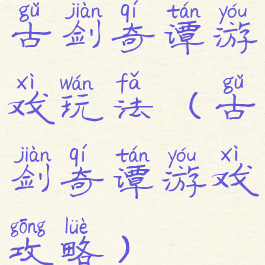 gǔ jiàn qí tán yóu
古剑奇谭游
xì wán fǎ gǔ
戏玩法(古
jiàn qí tán yóu xì
剑奇谭游戏
gōng lüè
攻略)